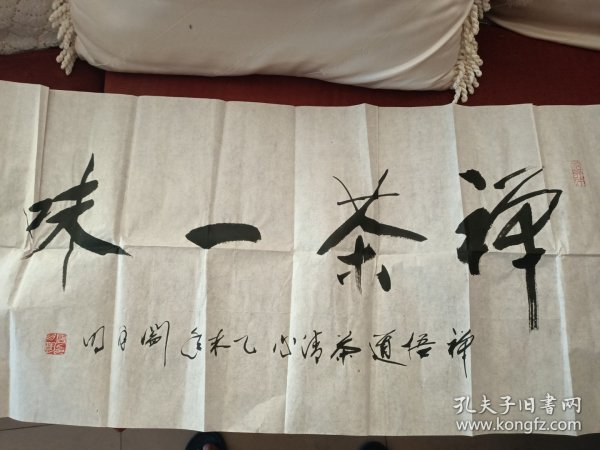 禅茶一味
禅悟道茶清心乙未年
孔夫子旧书网
www.kongfz.com